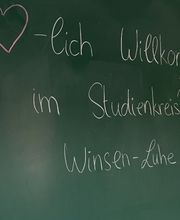 ♡-lich Willkom
im Studienkreis
Winsen-Luhe